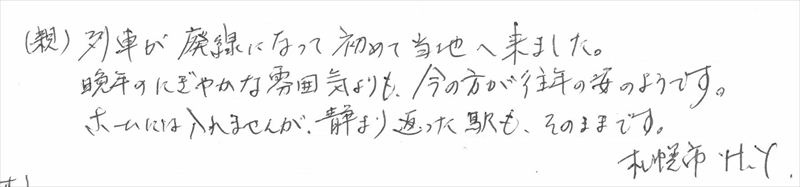 （親）列車が廃線になって初めて当地へ来ました。
晩年のにぎやかな雰囲気よりも、今の方が往年の姿のようです。
ホームには入れませんが、静まり返った駅も、そのままです。
札幌市 H.Y.